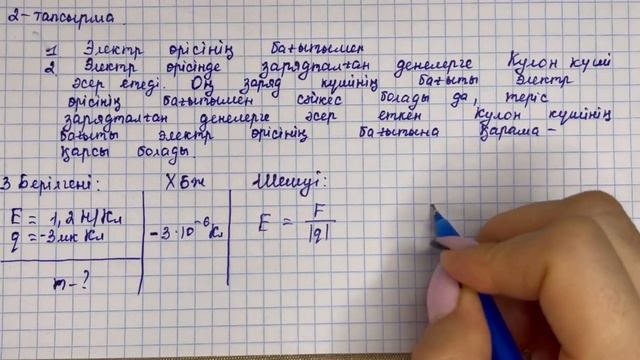 2- тапсырма.
1. Электр өрісінің бағытымен
2. Электр өрісінде зарядталған денелерге Кулон күші
әсер етеді. Оң заряд күшінің бағыты электр
өрісінің бағытымен сәйкес болады да, теріс
зарядталған денелерге әсер еткен Кулон күшінің
бағыты электр өрісінің бағытына қарама-
қарсы болады.
3 Берілгені: ХБж Шешуі:
E = 1,2 Н/Кл
q = -3 мкКл -3·10⁻⁶ Кл E = F/|q|
m - ?